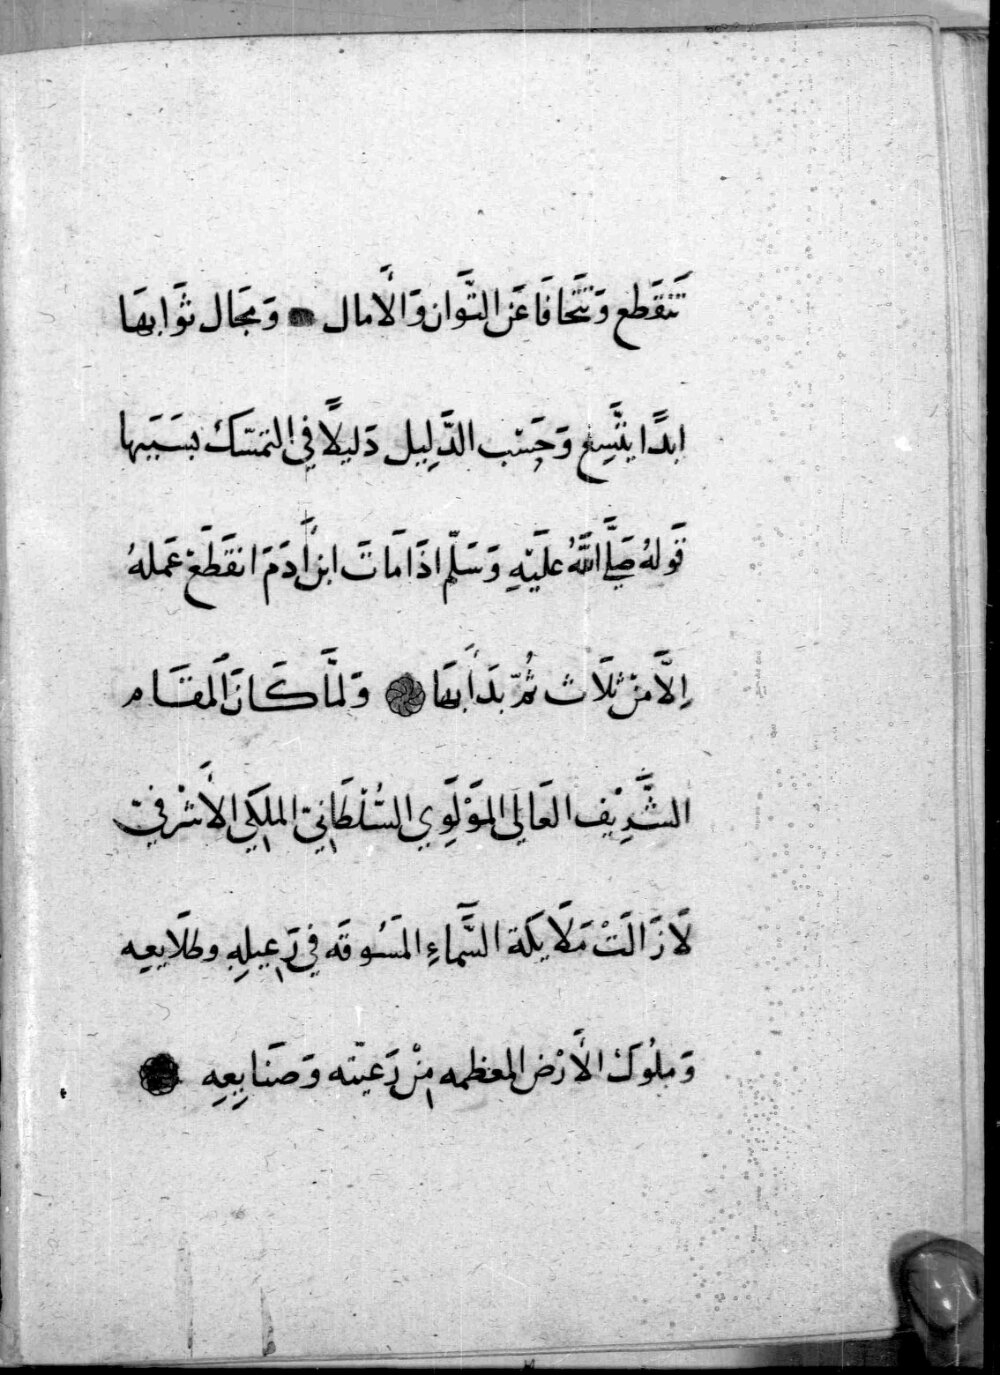 تَنْقَطع وَتَتَجَافَا عَن التَّوَان وَالأَمال وَمَجَال ثَوَابهَا
ابدًا يتَّسِع وَحَسْب الدَّلِيل دَليلاً في التمسّك بسَبَبِها
قَولهُ صَلَّى اللَّهُ عَلَيْهِ وَسَلّم اذَا مَاتَ ابن أَدَمَ انقَطَعْ عَملهُ
إِلَّا منْ ثلَاث ثُمّ بَدَأ بهَا وَلمَّا كَانَ المقَام
الشَّرِيْف العَالِي المَوْلَوِي السُّلْطَانِيّ الملِكَي الأَشْرفيّ
لَا زَالَتْ مَلَايكَة السَّمَاءِ المَسُوقَه في رَعِيلِهِ وطلَايعِه
وَملُوك الأَرْض المعظمه مِنْ رَعيّته وَصنَايعِهِ